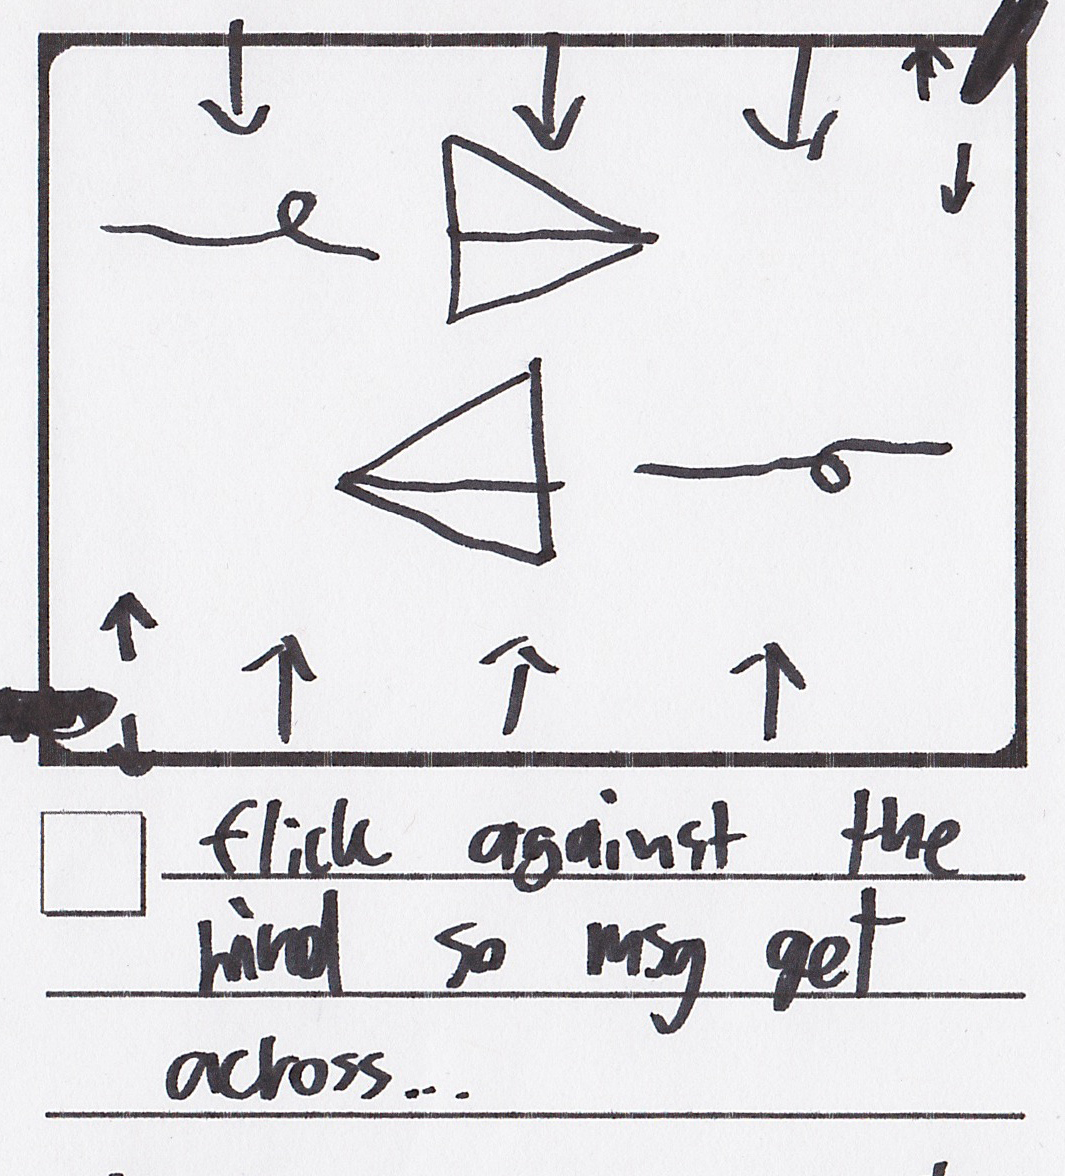 flick against the
wind so msg get
across...